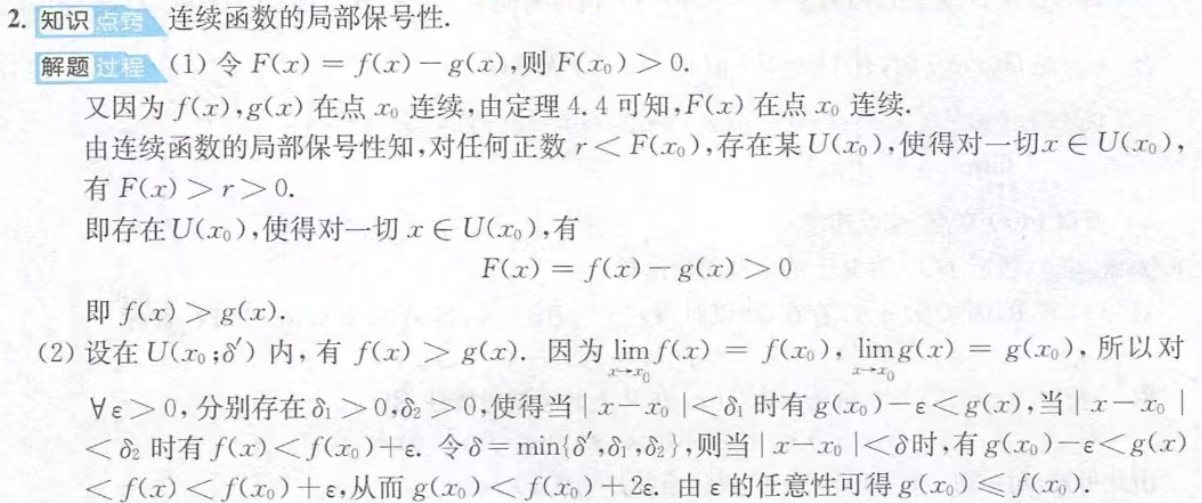 2. 知识点窍 连续函数的局部保号性.
解题过程 (1) 令 F(x) = f(x) − g(x),则 F(x₀) > 0.
又因为 f(x),g(x) 在点 x₀ 连续,由定理 4.4 可知,F(x) 在点 x₀ 连续.
由连续函数的局部保号性知,对任何正数 r < F(x₀),存在某 U(x₀),使得对一切 x ∈ U(x₀),
有 F(x) > r > 0.
即存在 U(x₀),使得对一切 x ∈ U(x₀),有
F(x) = f(x) − g(x) > 0
即 f(x) > g(x).
(2) 设在 U(x₀;δ′) 内,有 f(x) > g(x). 因为 lim_{x→x₀} f(x) = f(x₀), lim_{x→x₀} g(x) = g(x₀),所以对
∀ε > 0,分别存在 δ₁ > 0,δ₂ > 0,使得当 | x − x₀ | < δ₁ 时有 g(x₀) − ε < g(x),当 | x − x₀ |
< δ₂ 时有 f(x) < f(x₀) + ε. 令 δ = min{δ′,δ₁,δ₂},则当 | x − x₀ | < δ 时,有 g(x₀) − ε < g(x)
< f(x) < f(x₀) + ε,从而 g(x₀) < f(x₀) + 2ε. 由 ε 的任意性可得 g(x₀) ≤ f(x₀).